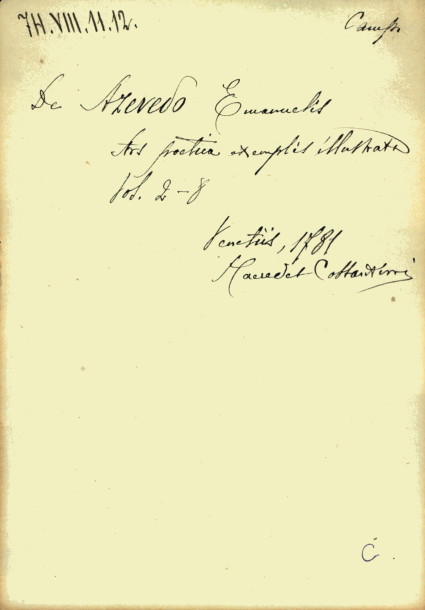 7H.VIII.11.12.
De Azevedo Emanuelis
Ars poetica exemplis illustrata
Vol. 2-8
Venetiis, 1781
Č.